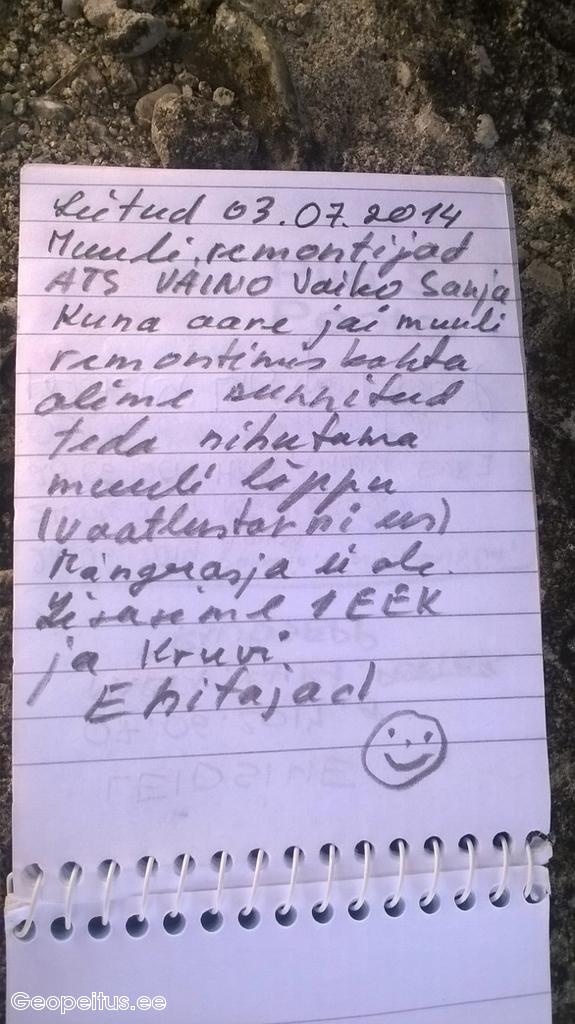 Leitud 03.07.2014
Muuli remontijad
ATS VAINO Vaiko Sanja
Kuna aare jäi muuli
remontimiskohta
olime sunnitud
teda nihutama
muuli lõppu
(vaatlustorni ees)
Mängrasja ei ole.
Lisasime 1 EEK
ja Kruvi.
Ehitajad
Geopeitus.ee